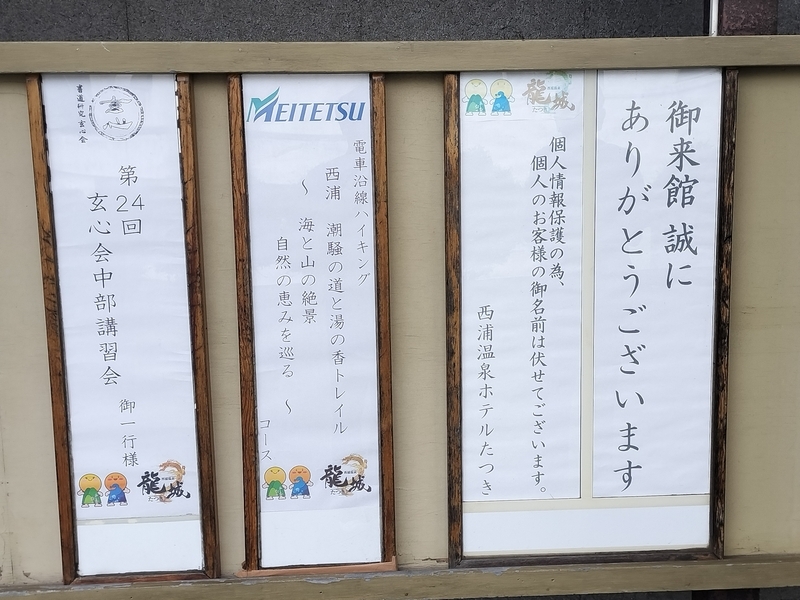 御来館 誠に
ありがとうございます
龍城
個人情報保護の為、
個人のお客様の御名前は伏せてございます。
西浦温泉ホテルたつき
MEITETSU
電車沿線ハイキング
西浦 潮騒の道と湯の香トレイル
～ 海と山の絶景
自然の恵みを巡る ～
コース
龍城
書道研究玄心会
第24回
玄心会中部講習会
御一行様
龍城